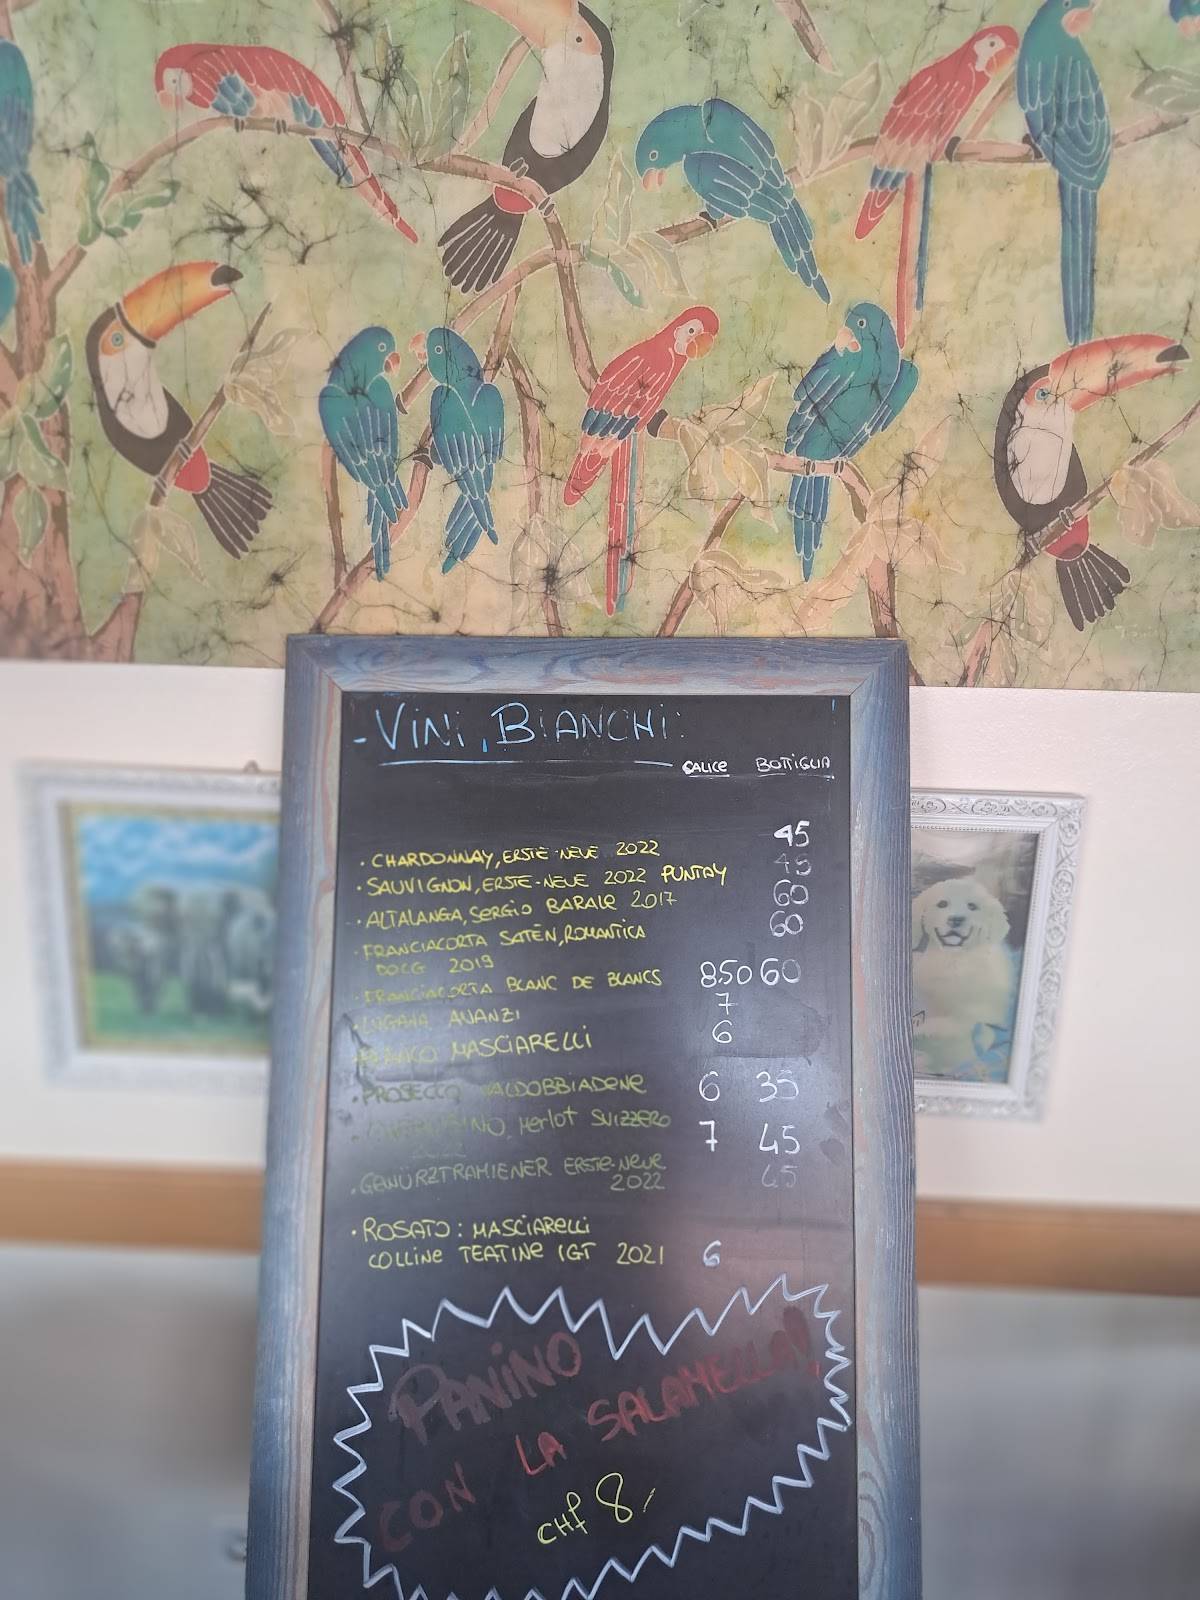 - VINI, BIANCHI:
CALICE BOTTIGLIA
• CHARDONNAY, ERSTE-NEUE 2022 45
• SAUVIGNON, ERSTE-NEUE 2022 PUNTAY 45
• ALTALANGA, SERGIO BARALE 2017 60
• FRANCIACORTA SATEN, ROMANTICA 60
DOCG 2019
• FRANCIACORTA BLANC DE BLANCS 8.50 60
• LUGANA AVANZI 7
• BIANCO MASCIARELLI 6
• PROSECCO VALDOBBIADENE 6 35
Merlot SVIZZERO 7 45
• GEWÜRZTRAMIENER ERSTE-NEUE 45
2022
• ROSATO: MASCIARELLI
COLLINE TEATINE IGT 2021 6
PANINO
CON LA SALAMELLA!
CHF 8.-